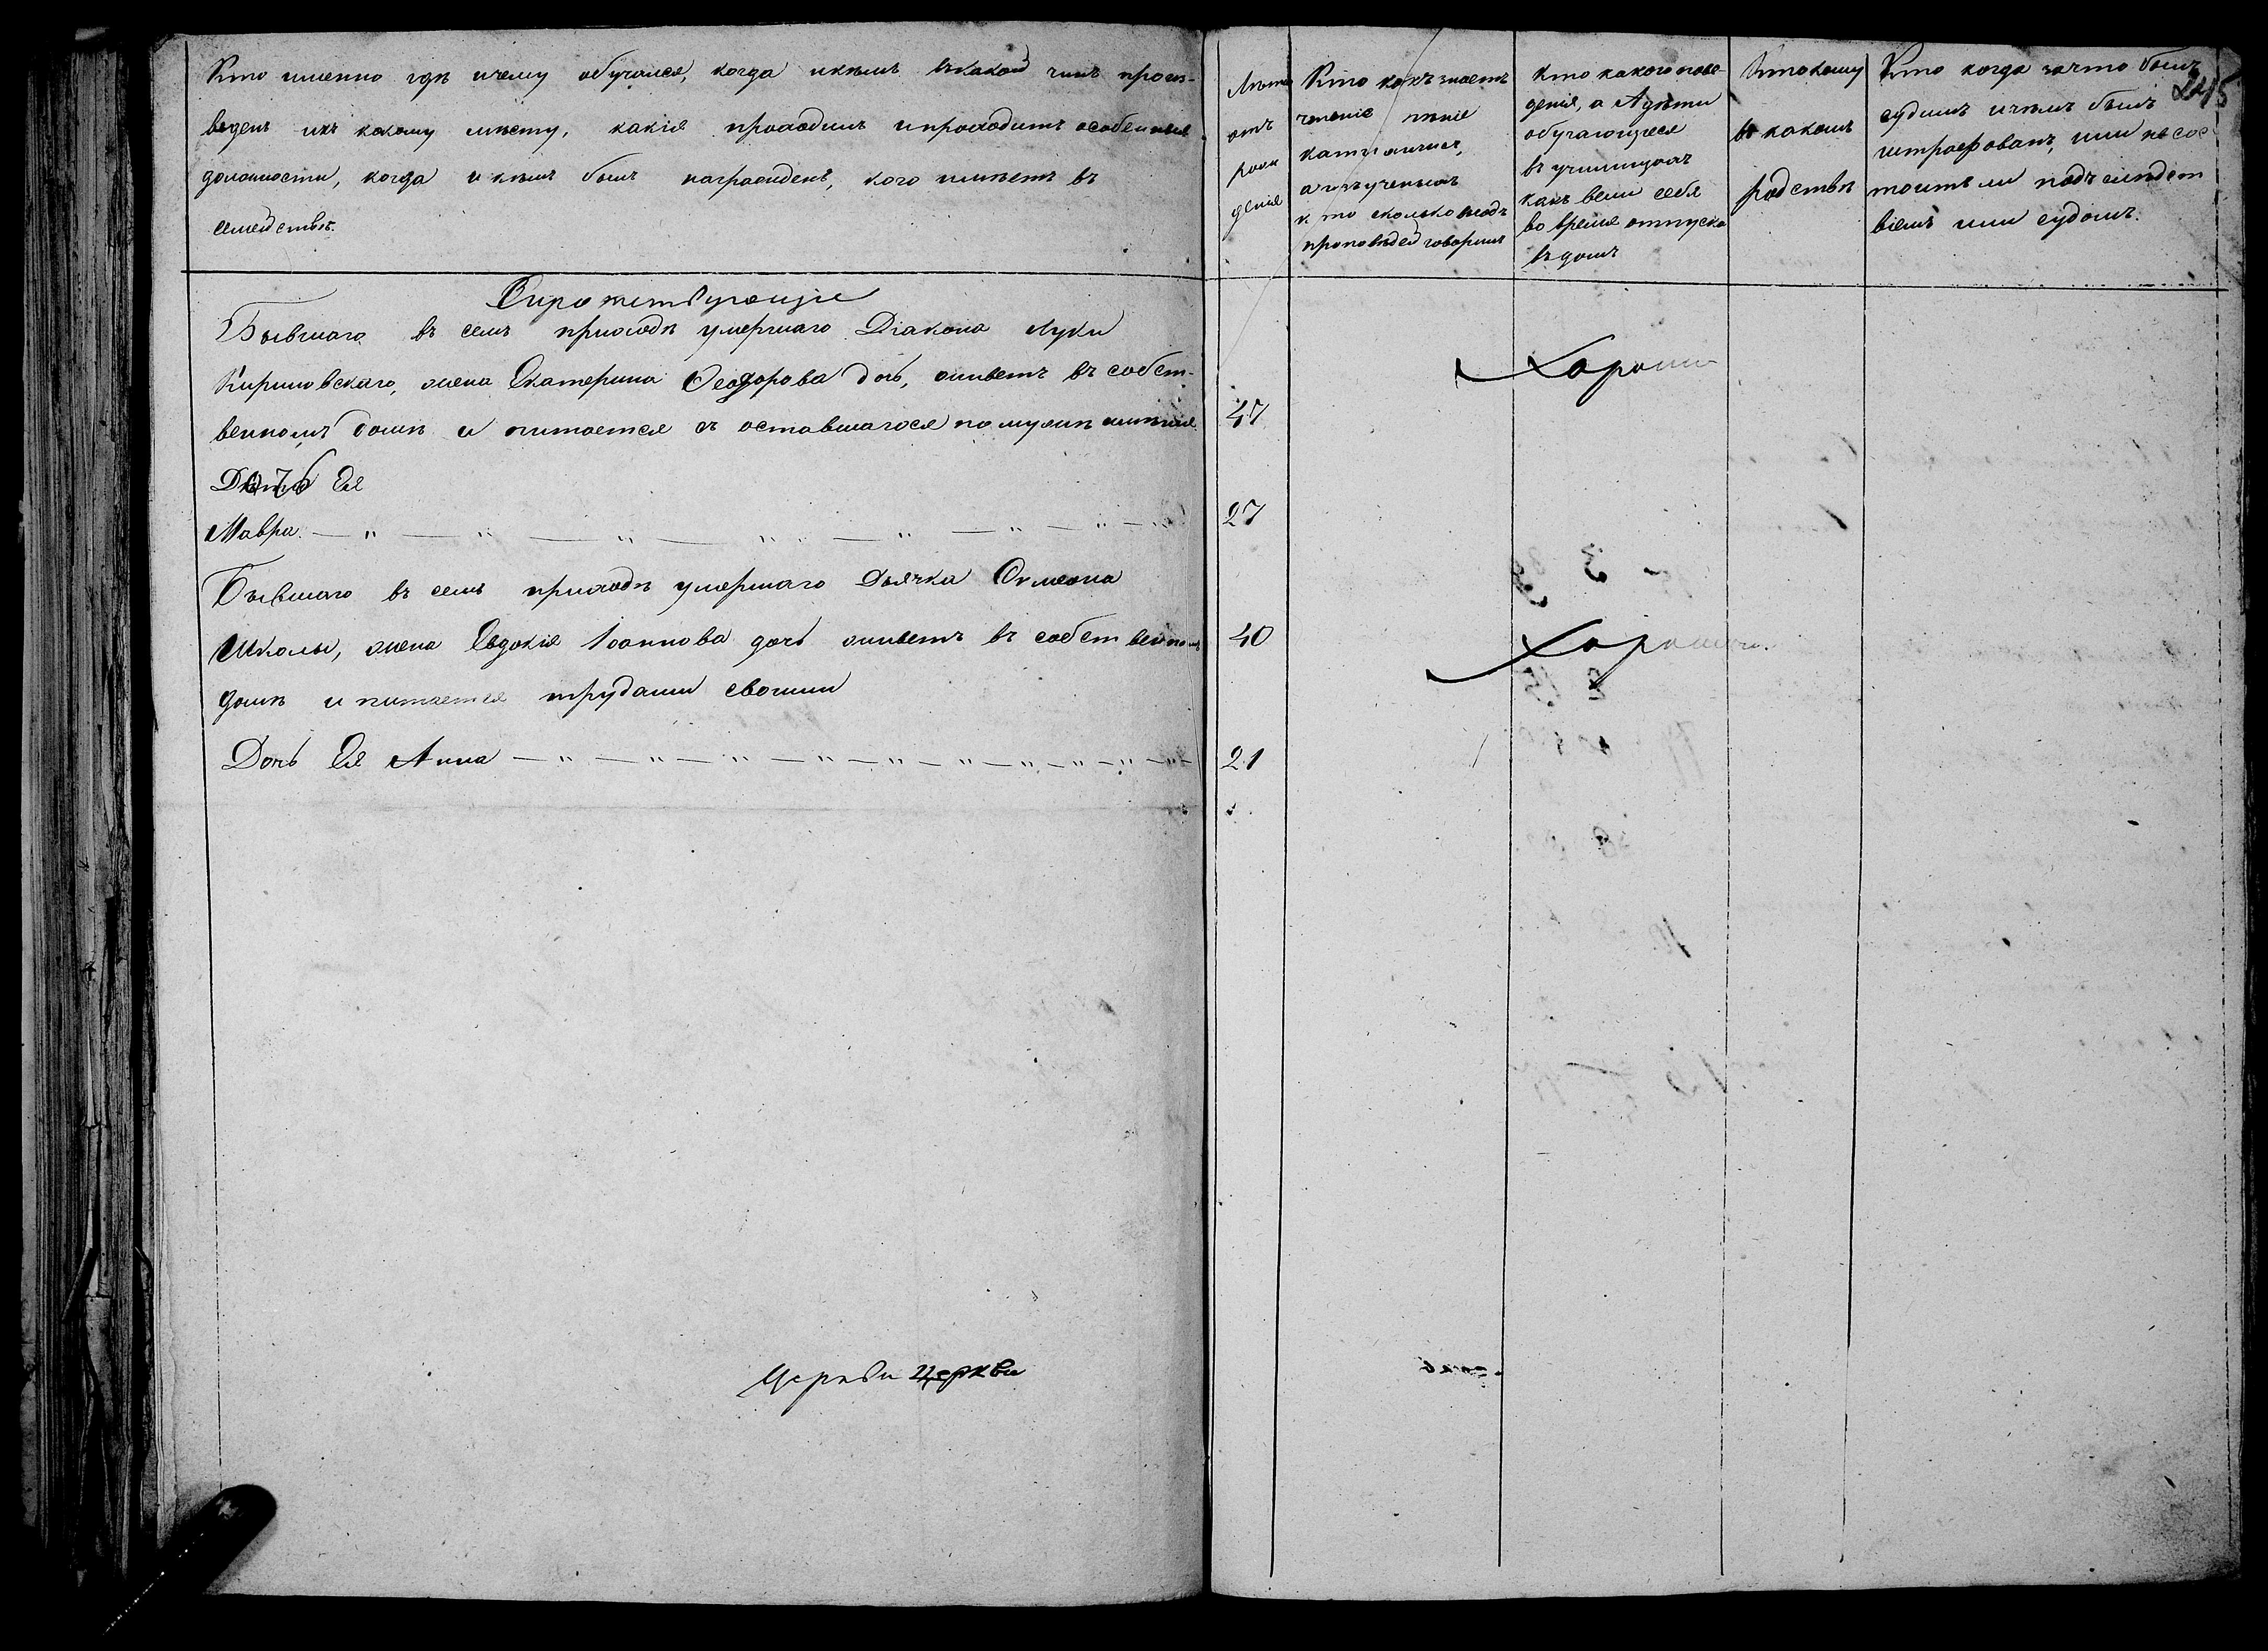 Кто именно гдѣ и чему обучался, когда и кѣмъ въ какой чинъ произ-
веденъ и къ какому мѣсту, какія проходилъ и проходитъ особенныя
должности, когда и кѣмъ былъ награжденъ, кого имѣетъ въ
семействѣ.
Лѣта
отъ
рож
денія
Кто какъ знаетъ
чтеніе пѣніе
катихизисъ,
а изъ ученыхъ
кто сколько въ годъ
проповѣдей говорилъ
Кто какого пове-
денія, а дѣти
обучающіеся
въ училищахъ
какъ вели себя
во время отпуска
въ домъ
Кто кому
въ какомъ
родствѣ
245
Кто когда за что былъ
судимъ и чѣмъ былъ
штрафованъ, или не сос-
тоитъ ли подъ слѣдст
віемъ или судомъ.
Сиротствующіе
Бывшаго въ семъ приходѣ умершаго Діакона Луки
Кириловскаго, жена Екатерина Ѳеодорова дочь, живетъ въ собст-
венномъ домѣ и питается съ оставшагося по мужѣ имѣнія
47
Хороши
Дочь Ея
Мавра
27
Бывшаго въ семъ приходѣ умершаго Дьячка Симеона
Школы, жена Евдокія Іоаннова дочь живетъ въ собственномъ
40
Хороши.
домѣ и питается трудами своими
Дочь Ея Анна
21
Церкви Церкви